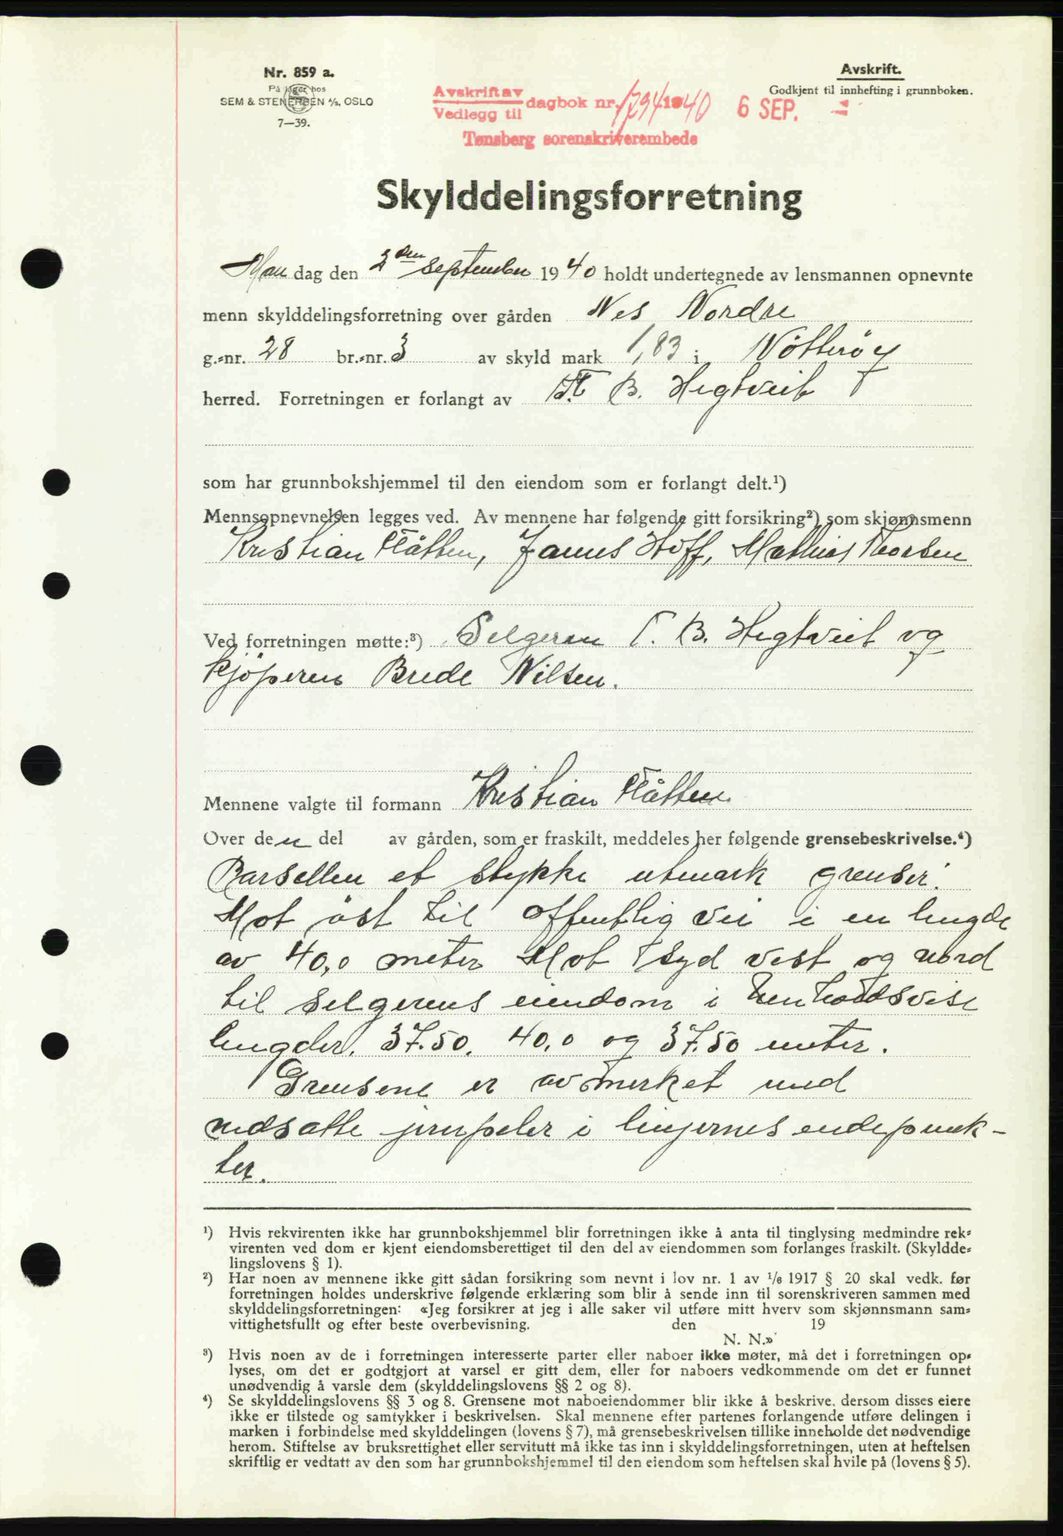 Nr. 859 a.
På lager hos
SEM & STENERSEN A/S, OSLO
7—39.
Avskrift av
Vedlegg til
dagbok nr. 1794 1940 6 SEP.
Tønsberg sorenskriverembede
Avskrift.
Godkjent til innhefting i grunnboken.
Skylddelingsforretning
Man dag den 2den september 1940 holdt undertegnede av lensmannen opnevnte
menn skylddelingsforretning over gården Nes Nordre
g.-nr. 28 br.-nr. 3 av skyld mark 1,83 i Nötteröy
herred. Forretningen er forlangt av T. B. Hegtveit
som har grunnbokshjemmel til den eiendom som er forlangt delt.¹)
Mennsopnevnelsen legges ved. Av mennene har følgende gitt forsikring²) som skjønnsmenn
Kristian Flåtten, James Hoff, Mathias Thorsen
Ved forretningen møtte:³) Selgeren T. B. Hegtveit og
kjöperen Brede Nilsen.
Mennene valgte til formann Kristian Flåtten
Over den del av gården, som er fraskilt, meddeles her følgende grensebeskrivelse.⁴)
Parsellen et stykke utmark grenser:
Mot öst til offentlig vei i en lengde
av 40,0 meter Mot syd vest og nord
til selgerens eiendom i henholdsvise
lengder. 37.50. 40,0 og 37.50 meter.
Grensene er avmerket med
nedsatte jernpeler i linjernes endepunk-
ter.
¹) Hvis rekvirenten ikke har grunnbokshjemmel blir forretningen ikke å anta til tinglysing medmindre rek-
virenten ved dom er kjent eiendomsberettiget til den del av eiendommen som forlanges fraskilt. (Skyldde-
lingslovens § 1).
²) Har noen av mennene ikke gitt sådan forsikring som nevnt i lov nr. 1 av 1/6 1917 § 20 skal vedk. før
forretningen holdes underskrive følgende erklæring som blir å sende inn til sorenskriveren sammen med
skylddelingsforretningen: «Jeg forsikrer at jeg i alle saker vil utføre mitt hverv som skjønnsmann sam-
vittighetsfullt og efter beste overbevisning. den 19
N. N.»
³) Hvis noen av de i forretningen interesserte parter eller naboer ikke møter, må det i forretningen op-
lyses, om det er godtgjort at varsel er gitt dem, eller for naboers vedkommende om det er funnet
unødvendig å varsle dem (skylddelingslovens §§ 2 og 8).
⁴) Se skylddelingslovens §§ 3 og 8. Grensene mot naboeiendommer blir ikke å beskrive, dersom disses eiere
ikke er tilstede og samtykker i beskrivelsen. Skal mennene efter partenes forlangende utføre delingen i
marken i forbindelse med skylddelingen (lovens § 7), må grensebeskrivelsen tillike inneholde det nødvendige
herom. Stiftelse av bruksrettighet eller servitutt må ikke tas inn i skylddelingsforretningen, uten at heftelsen
skriftlig er vedtatt av den som har grunnbokshjemmel til den eiendom som heftelsen skal hvile på (lovens § 5).